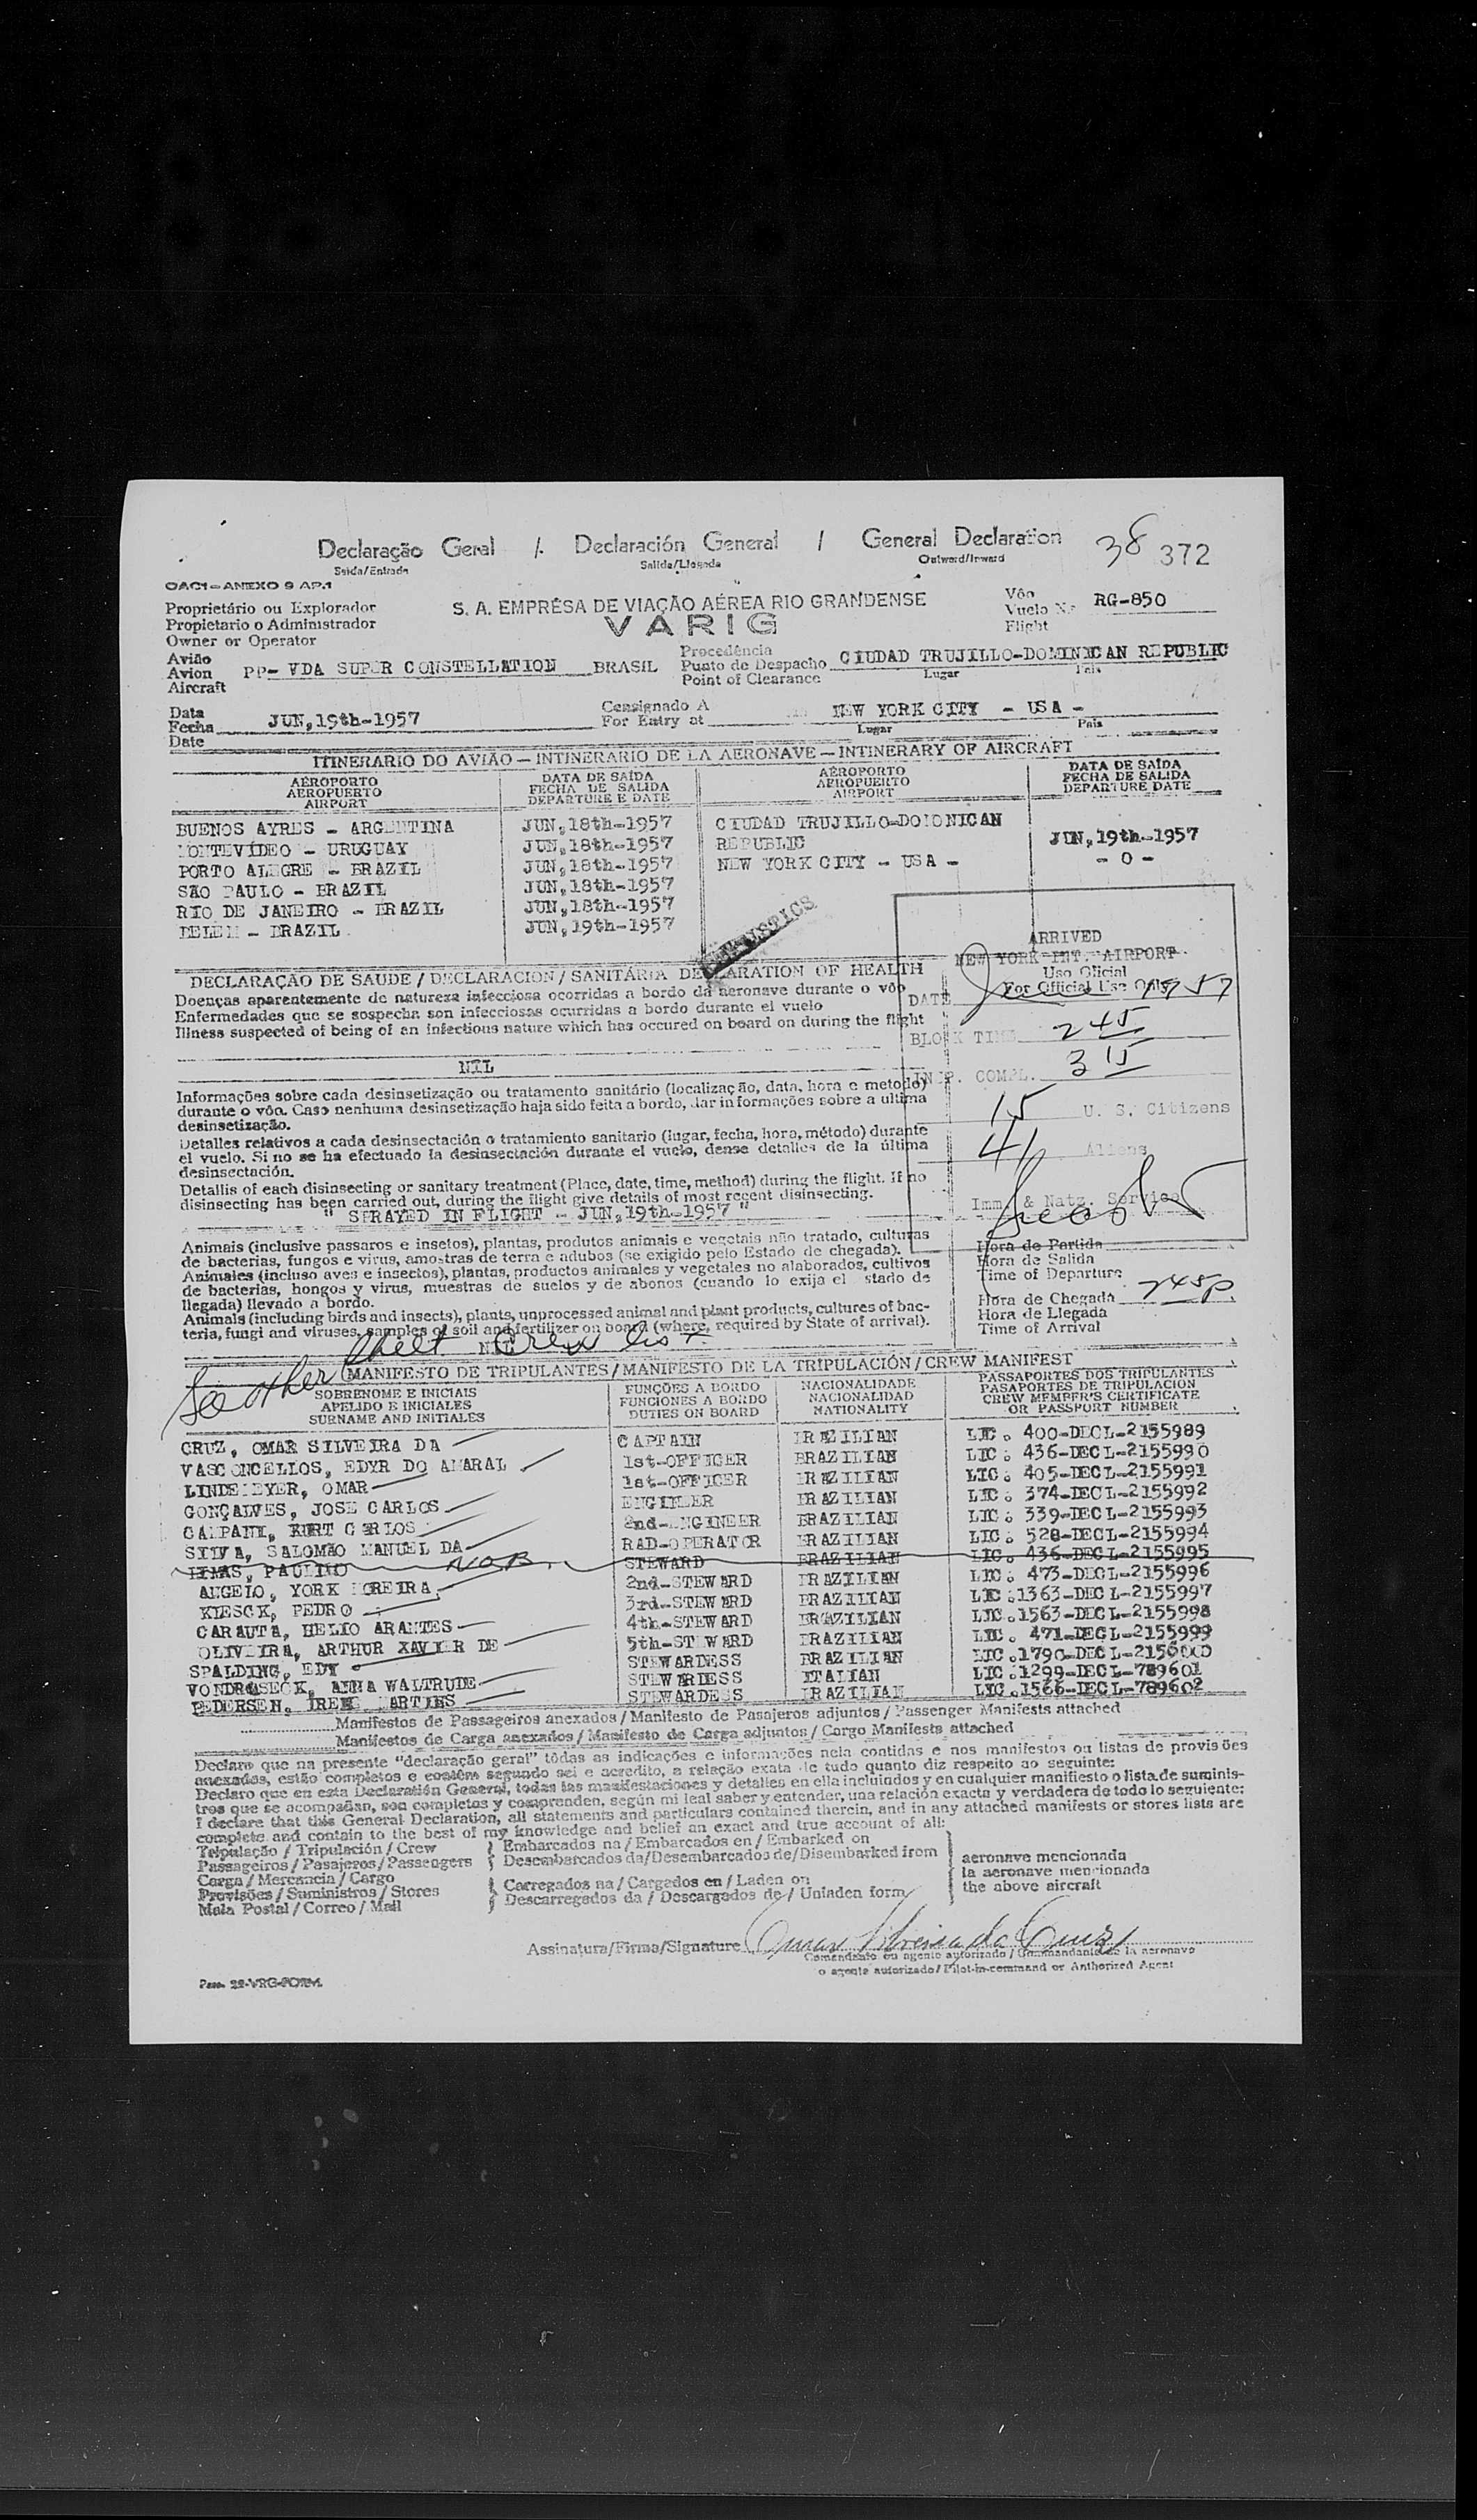 Declaração Geral / Declaración General / General Declaration 38 372
Saída/Entrada Salida/Llegada Outward/Inward
OACI-ANEXO 9 AP.1
Proprietário ou Explorador
Propietario o Administrador
Owner or Operator
S. A. EMPRÊSA DE VIAÇÃO AÉREA RIO GRANDENSE
VARIG
Vôo
Vuelo N.º RG-850
Flight
Avião
Avion PP- VDA SUPER CONSTELLATION BRASIL
Aircraft
Procedência
Punto de Despacho CIUDAD TRUJILLO-DOMINICAN REPUBLIC
Point of Clearance Lugar País
Data
Fecha JUN,19th-1957
Date
Consignado A
For Entry at NEW YORK CITY - USA -
Lugar País
ITINERARIO DO AVIÃO — INTINERARIO DE LA AERONAVE — INTINERARY OF AIRCRAFT
AÉROPORTO DATA DE SAÍDA AÉROPORTO DATA DE SAÍDA
AEROPUERTO FECHA DE SALIDA AEROPUERTO FECHA DE SALIDA
AIRPORT DEPARTURE E DATE AIRPORT DEPARTURE DATE
BUENOS AYRES - ARGENTINA JUN,18th-1957 CIUDAD TRUJILLO-DOMONICAN
MONTEVÍDEO - URUGUAY JUN,18th-1957 REPUBLIC JUN,19th-1957
PORTO ALEGRE - BRAZIL JUN,18th-1957 NEW YORK CITY - USA - - 0 -
SAO PAULO - BRAZIL JUN,18th-1957
RIO DE JANEIRO - BRAZIL JUN,18th-1957
BELEM - BRAZIL JUN,19th-1957
STATISTICS
ARRIVED
NEW YORK INT. AIRPORT
Uso Oficial
For Official Use Only
DATE June 19 57
BLOCK TIME 245
INSP. COMPL. 315
15 U. S. Citizens
41 Aliens
Imm. & Natz. Service
DECLARAÇÃO DE SAUDE / DECLARACION / SANITÁRIA DECLARATION OF HEALTH
Doenças aparentemente de natureza infecciosa ocorridas a bordo da aeronave durante o vôo
Enfermedades que se sospecha son infecciosas ocurridas a bordo durante el vuelo
Illness suspected of being of an infectious nature which has occured on board on during the flight
NIL
Informações sobre cada desinsetização ou tratamento sanitário (localização, data, hora e metodo)
durante o vôo. Caso nenhuma desinsetização haja sido feita a bordo, dar informações sobre a ultima
desinsetização.
Detalles relativos a cada desinsectación o tratamiento sanitario (lugar, fecha, hora, método) durante
el vuelo. Si no se ha efectuado la desinsectación durante el vuelo, dense detalles de la última
desinsectación.
Detallis of each disinsecting or sanitary treatment (Place, date, time, method) during the flight. If no
disinsecting has been carried out, during the flight give details of most recent disinsecting.
" SPRAYED IN FLIGHT - JUN,19th-1957 "
Animais (inclusive passaros e insetos), plantas, produtos animais e vegetais não tratado, culturas
de bacterias, fungos e virus, amostras de terra e adubos (se exigido pelo Estado de chegada).
Animales (incluso aves e insectos), plantas, productos animales y vegetales no alaborados, cultivos
de bacterias, hongos y virus, muestras de suelos y de abonos (cuando lo exija el stado de
llegada) llevado a bordo.
Animals (including birds and insects), plants, unprocessed animal and plant products, cultures of bac-
teria, fungi and viruses, samples of soil and fertilizer on board (where, required by State of arrival).
Hora de Partida
Hora de Salida
Time of Departure
Hora de Chegada 245p
Hora de Llegada
Time of Arrival
See other sheet Crew list
MANIFESTO DE TRIPULANTES / MANIFESTO DE LA TRIPULACIÓN / CREW MANIFEST
SOBRENOME E INICIAIS FUNÇÕES A BORDO NACIONALIDADE PASSAPORTES DOS TRIPULANTES
APELIDO E INICIALES FUNCIONES A BORDO NACIONALIDAD PASAPORTES DE TRIPULACION
SURNAME AND INITIALES DUTIES ON BOARD NATIONALITY CREW MEMBER'S CERTIFICATE
OR PASSPORT NUMBER
CRUZ, OMAR SILVEIRA DA CAPTAIN BRAZILIAN LIC. 400-DECL-2155989
VASCONCELLOS, EDYR DO AMARAL 1st-OFFICER BRAZILIAN LIC. 436-DECL-2155990
LINDEMEYER, OMAR 1st-OFFICER BRAZILIAN LIC. 405-DECL-2155991
GONÇALVES, JOSE CARLOS ENGINEER BRAZILIAN LIC. 374-DECL-2155992
CAMPANI, KURT CARLOS 2nd-ENGINEER BRAZILIAN LIC. 339-DECL-2155993
SILVA, SALOMÃO MANUEL DA RAD-OPERATOR BRAZILIAN LIC. 528-DECL-2155994
PAULINO N.O.B. STEWARD BRAZILIAN LIC. 436-DECL-2155995
ANGELO, YORK MOREIRA 2nd-STEWARD BRAZILIAN LIC. 473-DECL-2155996
KIESCK, PEDRO 3rd-STEWARD BRAZILIAN LIC.1363-DECL-2155997
CARAUTA, HELIO ARANTES 4th-STEWARD BRAZILIAN LIC.1563-DECL-2155998
OLIVEIRA, ARTHUR XAVIER DE 5th-STEWARD BRAZILIAN LIC. 471-DECL-2155999
SPALDING, EDY STEWARDESS BRAZILIAN LIC.1790-DECL-2156000
VONDROSECK, ANNA WALTRUDE STEWARDESS ITALIAN LIC.1299-DECL-789601
PEDERSEN, IRENE MARTINS STEWARDESS BRAZILIAN LIC.1566-DECL-789602
Manifestos de Passageiros anexados / Manifesto de Pasajeros adjuntos / Passenger Manifests attached
Manifestos de Carga anexados / Manifesto de Carga adjuntos / Cargo Manifests attached
Declaro que na presente "declaração geral" tôdas as indicações e informações nela contidas e nos manifestos ou listas de provisões
anexados, estão completos e contêm segundo sei e acredito, a relação exata de tudo quanto diz respeito ao seguinte:
Declaro que en esta Declaratión General, todas las manifestaciones y detalles en ella incluindos y en cualquier manifiesto o lista de suminis-
tros que se acompañan, son completos y comprenden, según mi leal saber y entender, una relación exacta y verdadera de todo lo seguiente:
I declare that this General Declaration, all statements and particulars contained therein, and in any attached manifests or stores lists are
complete and contain to the best of my knowledge and belief an exact and true account of all:
Tripulação / Tripulación / Crew
Passageiros / Pasajeros / Passengers
Carga / Mercancia / Cargo
Provisões / Suministros / Stores
Mala Postal / Correo / Mail
Embarcados na / Embarcados en / Embarked on
Desembarcados da/Desembarcados de/Disembarked from
Carregados na / Cargados en / Laden on
Descarregados da / Descargados de / Unladen form
aeronave mencionada
la aeronave mencionada
the above aircraft
Assinatura/Firma/Signature Omar Silveira da Cruz
Comandante ou agente autorizado / Commandante de la aeronave
o agente autorizado / Pilot-in-command or Anthorized Agent
Pass. 22-VRG-FORM.